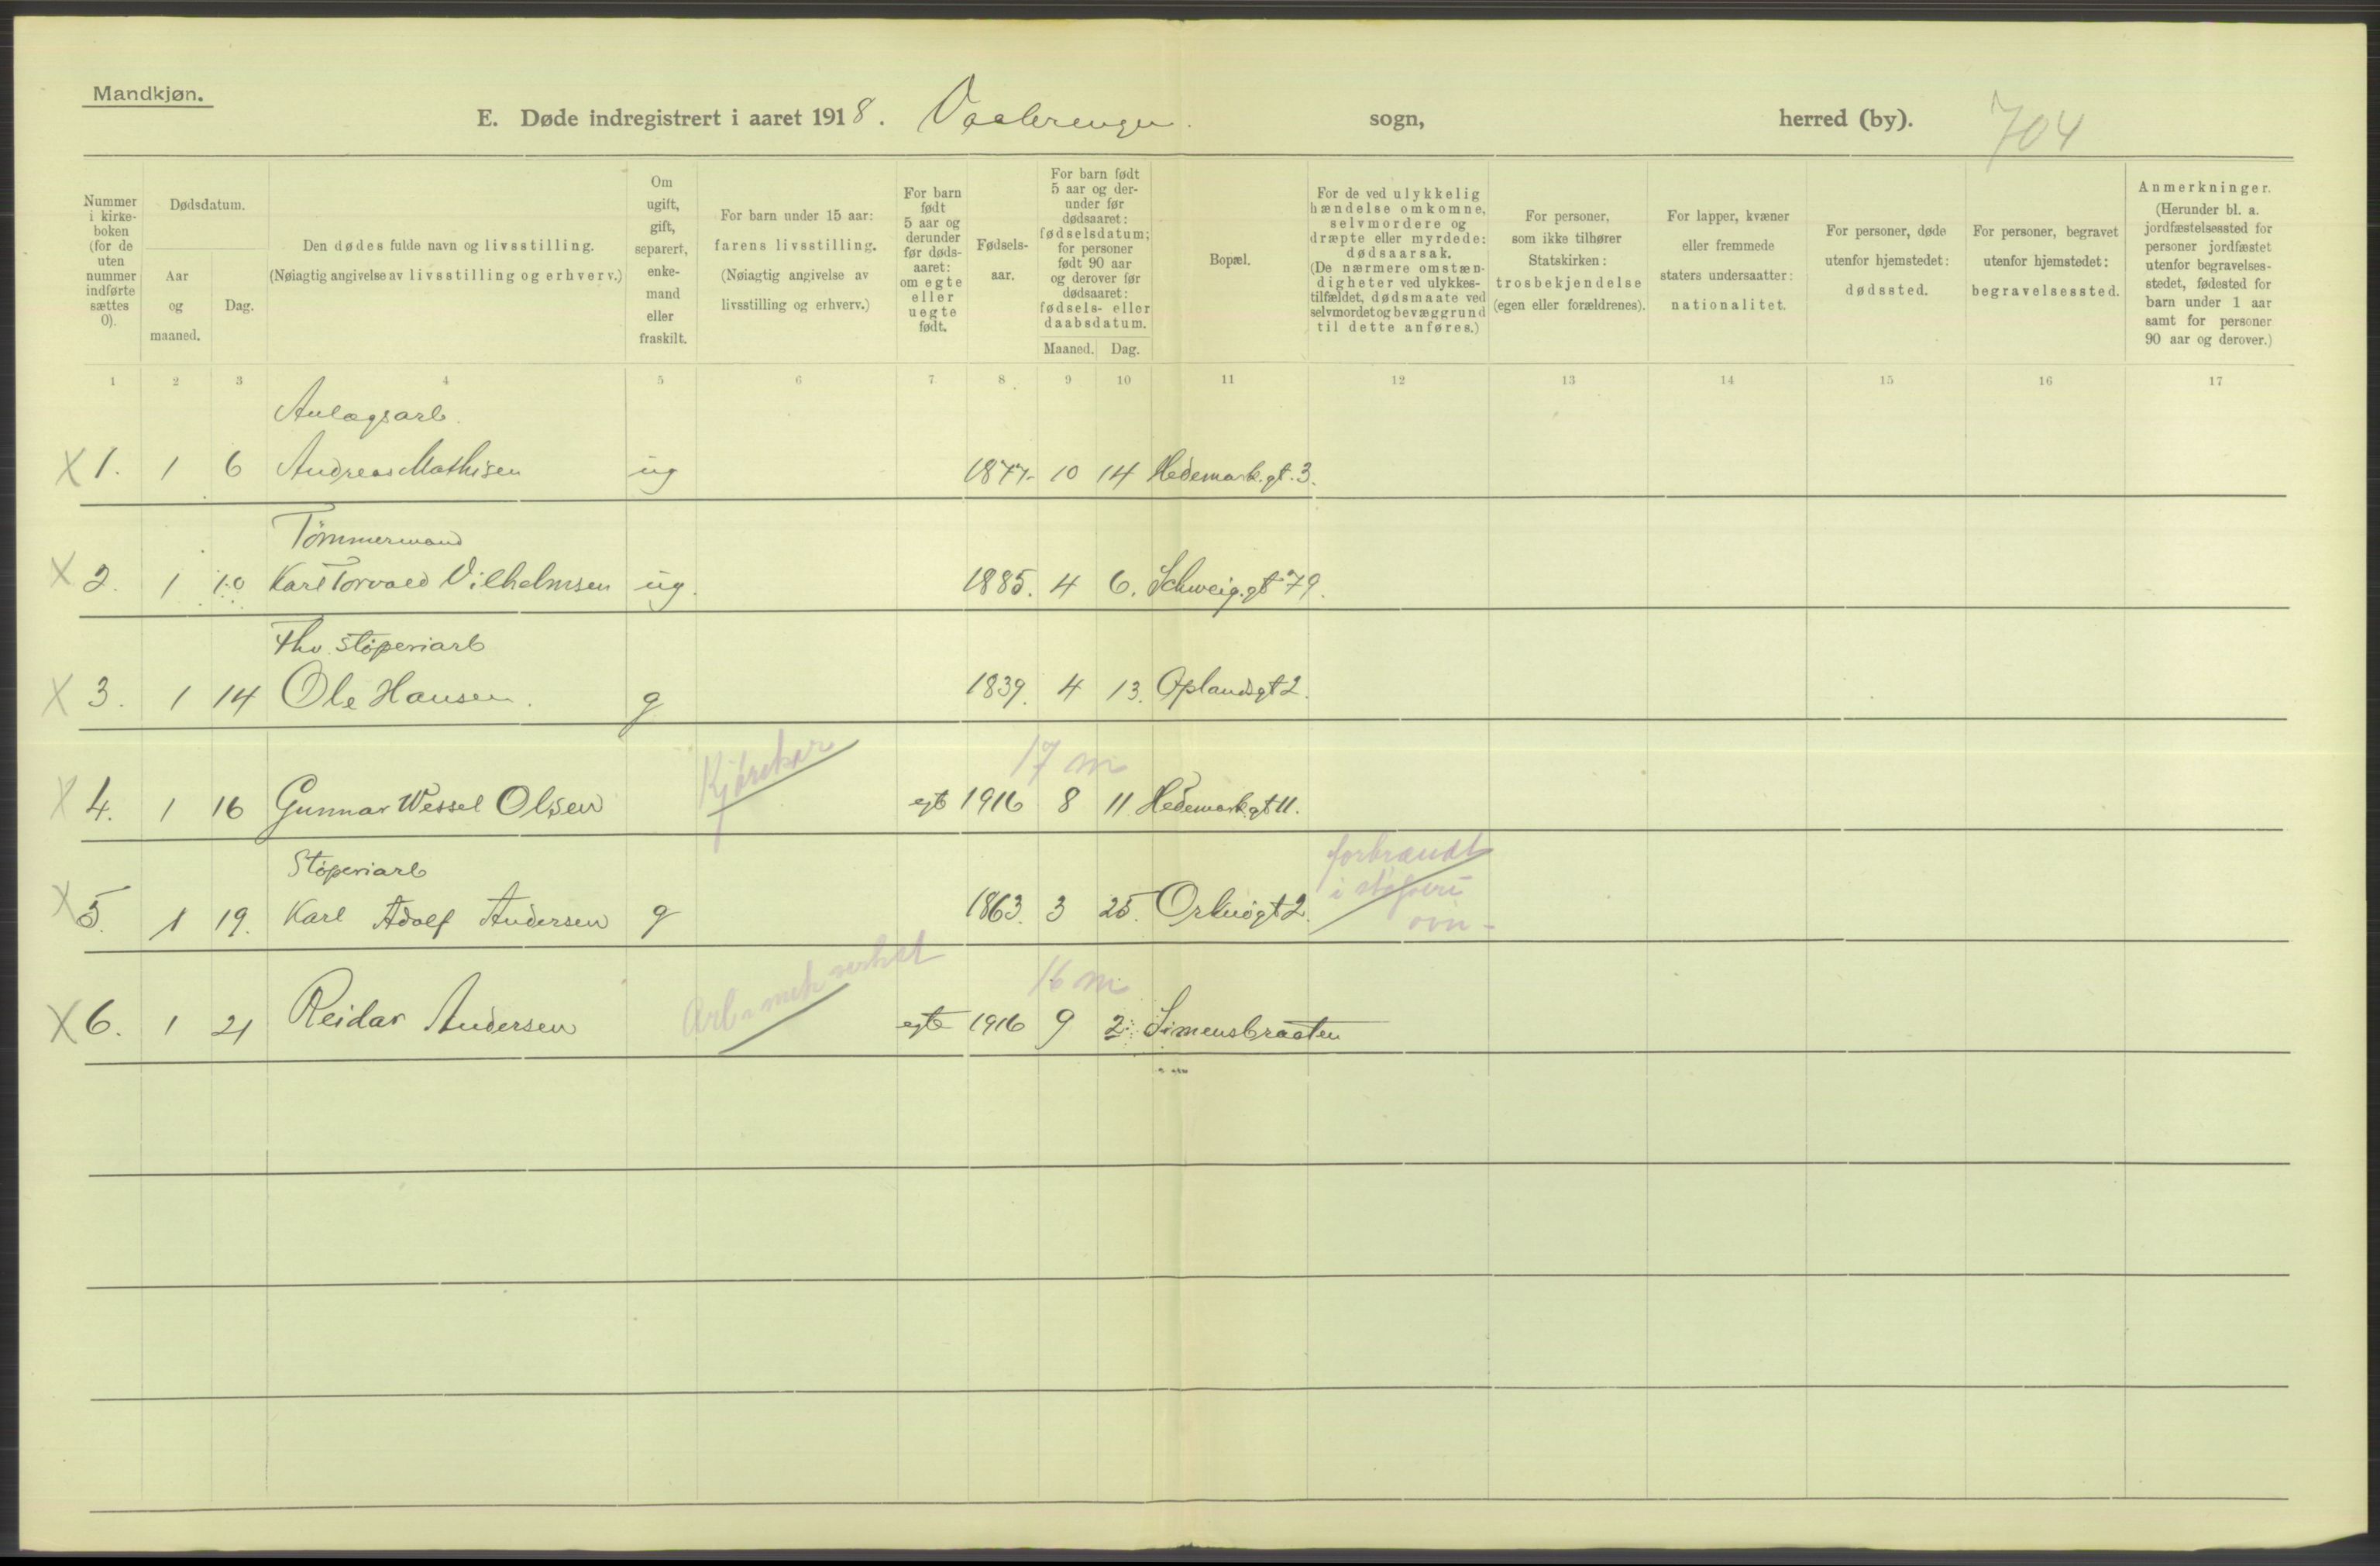 Mandkjøn.
E. Døde indregistrert i aaret 1918. Vaalerengen. sogn, herred (by). 704
Nummer i kirke-boken (for de uten nummer indførte sættes 0).
Dødsdatum.
Aar og maaned.
Dag.
Den dødes fulde navn og livsstilling.
(Nøiagtig angivelse av livsstilling og erhverv.)
Om ugift, gift, separert, enke-mand eller fraskilt.
For barn under 15 aar:
farens livsstilling.
(Nøiagtig angivelse av livsstilling og erhverv.)
For barn født 5 aar og derunder før døds-aaret: om egte eller uegte født.
Fødsels-aar.
For barn født 5 aar og der-under før dødsaaret: fødselsdatum; for personer født 90 aar og derover før dødsaaret: fødsels- eller daabsdatum.
Maaned. Dag.
Bopæl.
For de ved ulykkelig hændelse omkomne, selvmordere og dræpte eller myrdede: dødsaarsak.
(De nærmere omstæn-digheter ved ulykkes-tilfældet, dødsmaate ved selvmordet og bevæggrund til dette anføres.)
For personer, som ikke tilhører Statskirken: trosbekjendelse (egen eller forældrenes).
For lapper, kvæner eller fremmede staters undersaatter: nationalitet.
For personer, døde utenfor hjemstedet: dødssted.
For personer, begravet utenfor hjemstedet: begravelsessted.
Anmerkninger.
(Herunder bl. a. jordfæstelsessted for personer jordfæstet utenfor begravelses-stedet, fødested for barn under 1 aar samt for personer 90 aar og derover.)
1 2 3 4 5 6 7 8 9 10 11 12 13 14 15 16 17
Anlægsarb.
X 1. 1 6 Andreas Mathisen ug 1877. 10 14 Hedemark.gt. 3.
Tømmermand
X 2. 1 10 Karl Torvald Vilhelmsen ug. 1885. 4 6. Schweig.gt 79.
Fhv. Støperiarb
X 3. 1 14 Ole Hansen. g 1839. 4 13. Oplandsgt 2.
17 m
X 4. 1 16 Gunnar Wessel Olsen Kjørekar egt 1916 8 11 Hedemark.gt 11.
Støperiarb
forbrændt
X 5. 1 19. Karl Adolf Andersen g 1863. 3 25. Orknøgt 2. i støperi
ovn-
16 m
X 6. 1 21 Reidar Andersen Arb. mek verksted egte 1916 9 2. Simensbraaten